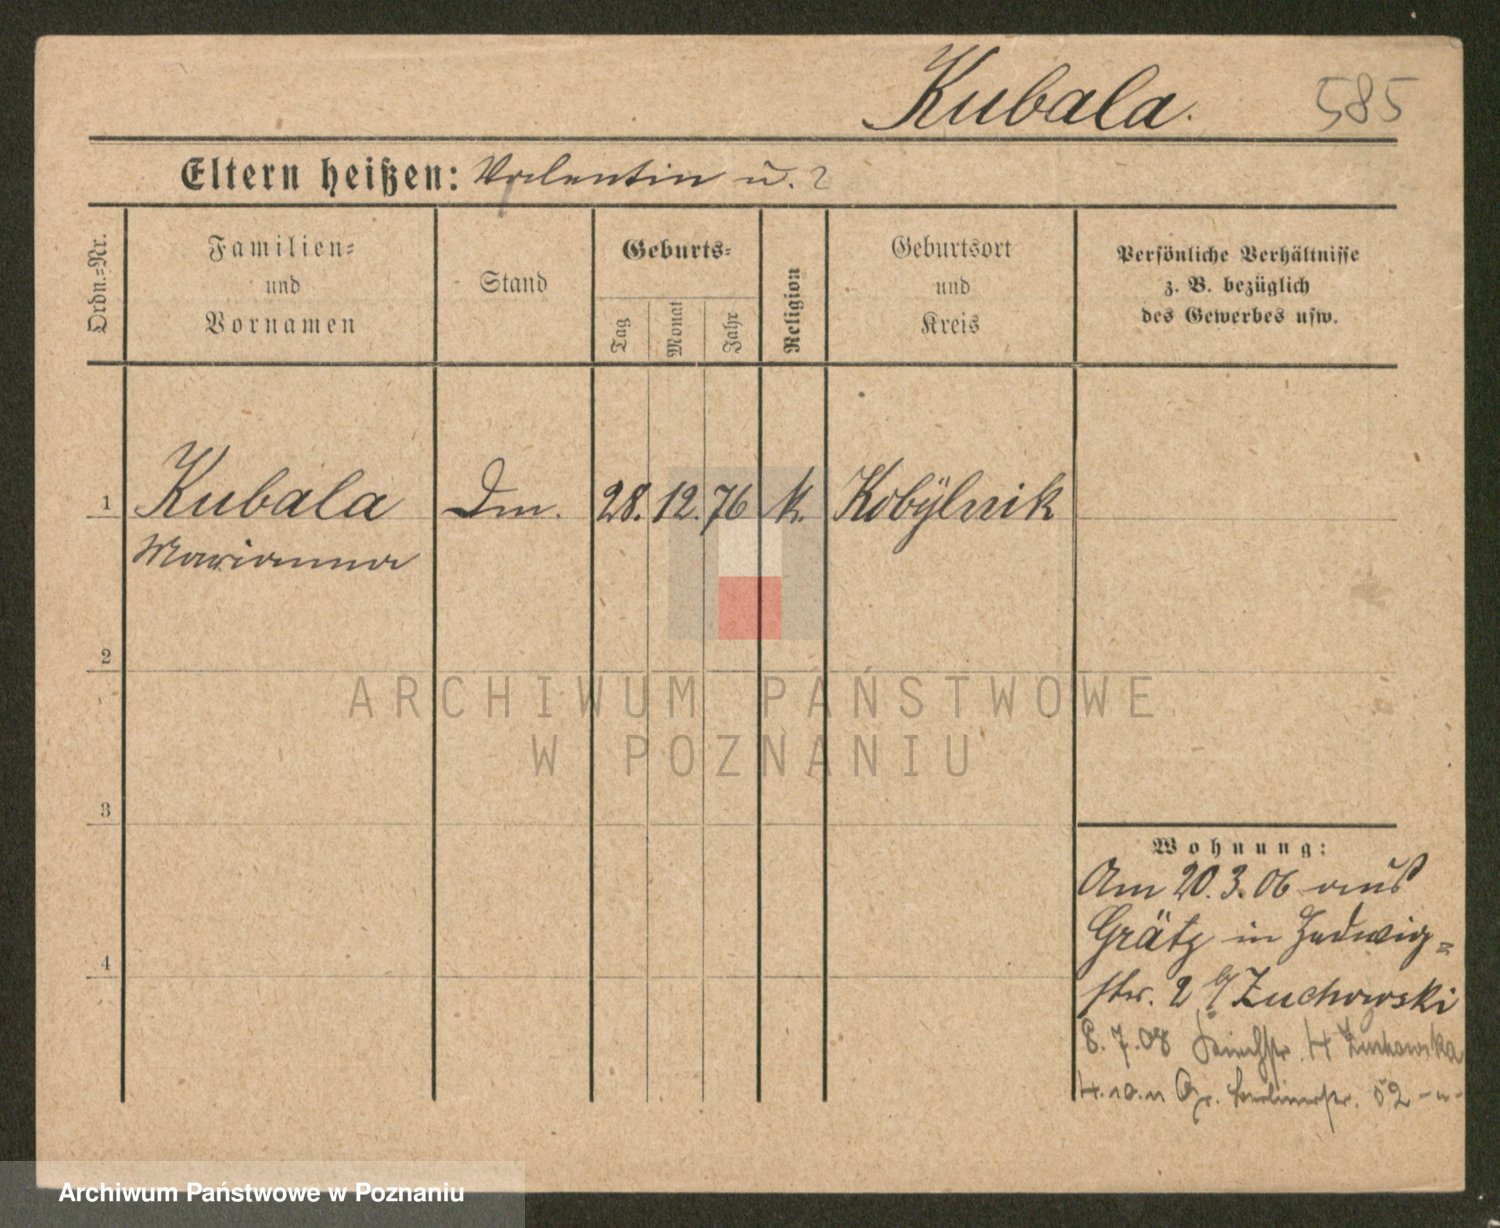 Kubala.
585
Eltern heißen: Valentin u. ?
Ordn.-Nr.
Familien-
und
Vornamen
Stand
Geburts-
Tag
Monat
Jahr
Religion
Geburtsort
und
Kreis
Persönliche Verhältnisse
z. B. bezüglich
des Gewerbes usw.
1 Kubala Dm. 28. 12. 76 k. Kobylnik
Marianna
2
ARCHIWUM PAŃSTWOWE
W POZNANIU
3
Wohnung:
Am 20.3.06 aus
Grätz in Hedwig-
str. 2 b/ Zuchowski
8.7.08 4 Zuchowska
4
4.10.11 Gr. Berlinerstr. 52 -u-
Archiwum Państwowe w Poznaniu